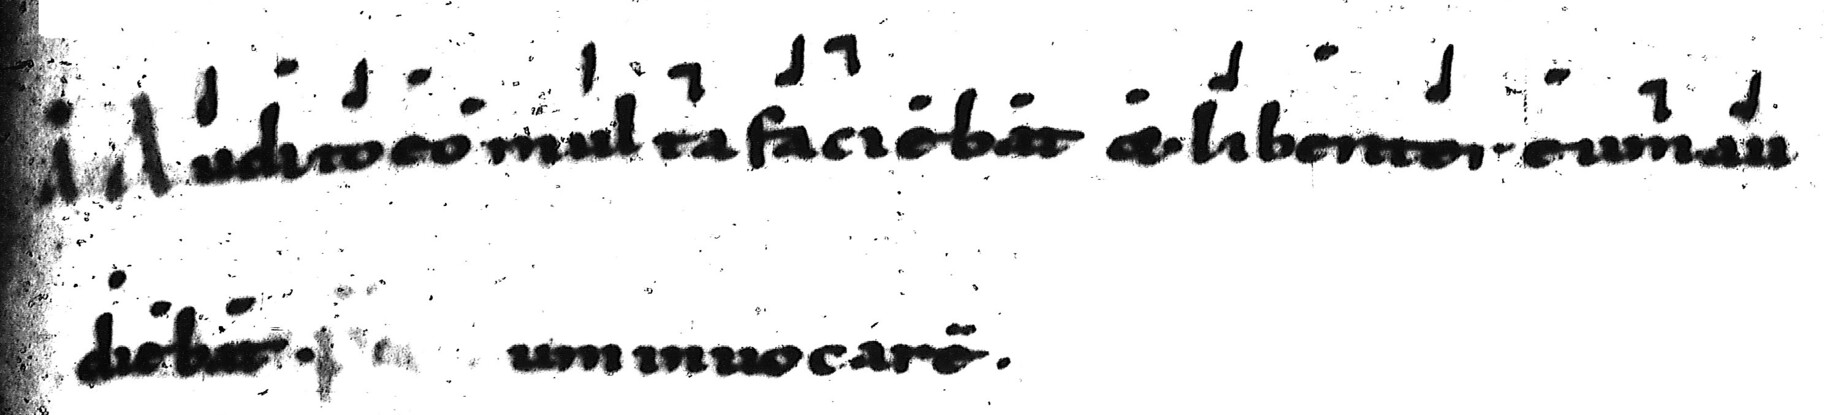 Audito eo multa faciebat & libenter eum au
diebat. P um inuocarē.